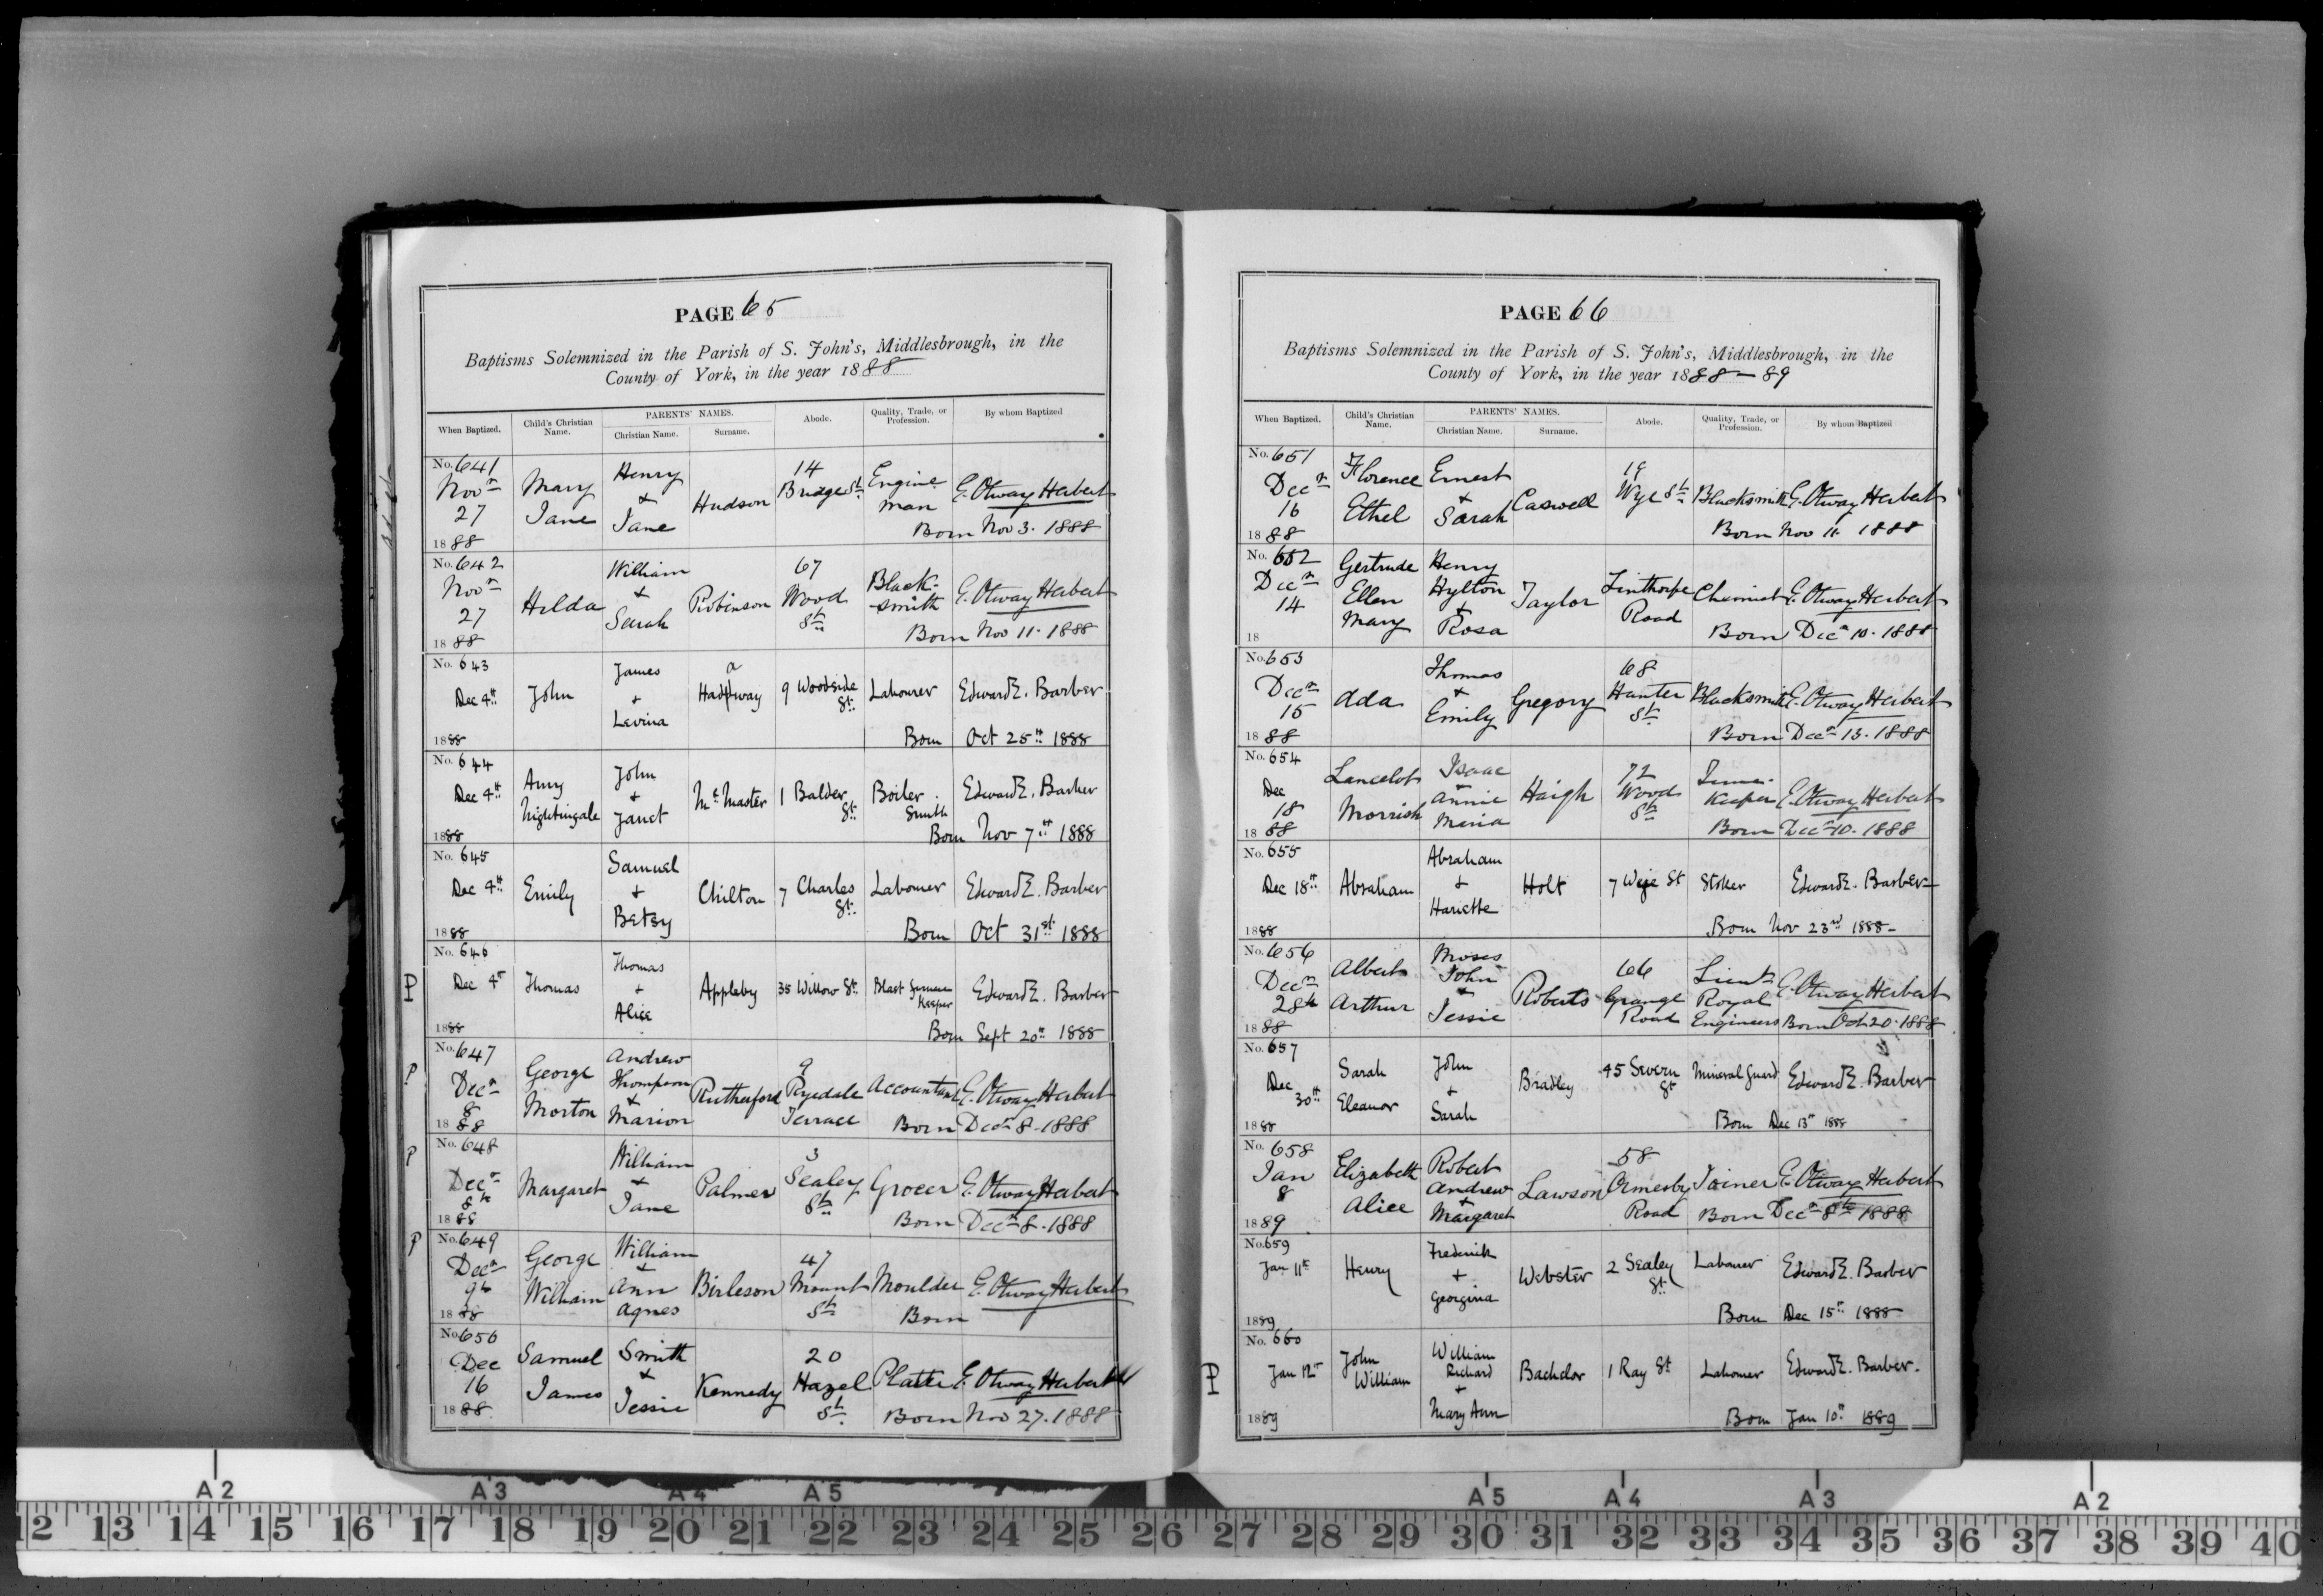 PAGE 65
Baptisms Solemnized in the Parish of S. John's, Middlesbrough, in the
County of York, in the year 1888
When Baptized. Child's Christian Name. PARENTS' NAMES. Christian Name. Surname. Abode. Quality, Trade, or Profession. By whom Baptized
No. 641 Novr 27 1888 Mary Jane Henry + Jane Hudson 14 Bridge St. Engine man E. Otway Herbert
Born Nov 3. 1888
No. 642 Novr 27 1888 Hilda William + Sarah Robinson 67 Wood St. Black-smith E. Otway Herbert
Born Nov 11. 1888
No. 643 Dec 4th 1888 John James + Levina Hadaway 9 Woodside St. Labourer Edward E. Barber
Born Oct 25th 1888
No. 644 Dec 4th 1888 Amy Nightingale John + Janet McMaster 1 Balder St. Boiler Smith Edward E. Barber
Born Nov 7th 1888
No. 645 Dec 4th 1888 Emily Samuel + Betsy Chilton 7 Charles St. Labourer Edward E. Barber
Born Oct 31st 1888
P No. 646 Dec 4th 1888 Thomas Thomas + Alice Appleby 35 Willow St. Blast furnace Keeper Edward E. Barber
Born Sept 20th 1888
P No. 647 Decr 8 1888 George Morton Andrew Thompson + Marion Rutherford 9 Ryedale Terrace Accountant E. Otway Herbert
Born Decr 8. 1888
P No. 648 Decr 8th 1888 Margaret William + Jane Palmer 3 Sealey St. Grocer E. Otway Herbert
Born Decr 8. 1888
P No. 649 Decr 9th 1888 George William William + Ann Agnes Birleson 47 Mount St. Moulder E. Otway Herbert
Born
No. 650 Dec 16 1888 Samuel James Smith + Jessie Kennedy 20 Hazel St. Plater E. Otway Herbert
Born Nov 27. 1888
PAGE 66
Baptisms Solemnized in the Parish of S. John's, Middlesbrough, in the
County of York, in the year 1888-89
When Baptized. Child's Christian Name. PARENTS' NAMES. Christian Name. Surname. Abode. Quality, Trade, or Profession. By whom Baptized
No. 651 Decr 16 1888 Florence Ethel Ernest + Sarah Caswell 19 Wye St. Blacksmith E. Otway Herbert
Born Nov 11. 1888
No. 652 Decr 14 18 Gertrude Ellen Mary Henry Hylton + Rosa Taylor Linthorpe Road Chemist E. Otway Herbert
Born Decr 10. 1888
No. 653 Decr 15 1888 Ada Thomas + Emily Gregory 68 Hunter St. Blacksmith E. Otway Herbert
Born Decr 13. 1888
No. 654 Dec 18 1888 Lancelot Morrish Isaac + Annie Maria Haigh 72 Wood St. Time-Keeper E. Otway Herbert
Born Decr 10. 1888
No. 655 Dec 18th 1888 Abraham Abraham + Hariette Holt 7 Wye St Stoker Edward E. Barber
Born Nov 23rd 1888
No. 656 Decr 28th 1888 Albert Arthur Moses John + Jessie Roberts 66 Grange Road Lieut Royal Engineers E. Otway Herbert
Born Oct 20. 1888
No. 657 Dec 30th 1888 Sarah Eleanor John + Sarah Bradley 45 Severn St Mineral Guard Edward E. Barber
Born Dec 13th 1888
No. 658 Jan 8 1889 Elizabeth Alice Robert Andrew + Margaret Lawson 58 Ormesby Road Joiner E. Otway Herbert
Born Decr 8th 1888
No. 659 Jan 11th 1889 Henry Frederick + Georgina Webster 2 Sealey St. Labourer Edward E. Barber
Born Dec 15th 1888
P No. 660 Jan 12th 1889 John William William Richard + Mary Ann Bachelor 1 Ray St Labourer Edward E. Barber.
Born Jan 10th 1889
A2 A3 A4 A5 A5 A4 A3 A2
12 13 14 15 16 17 18 19 20 21 22 23 24 25 26 27 28 29 30 31 32 33 34 35 36 37 38 39 40